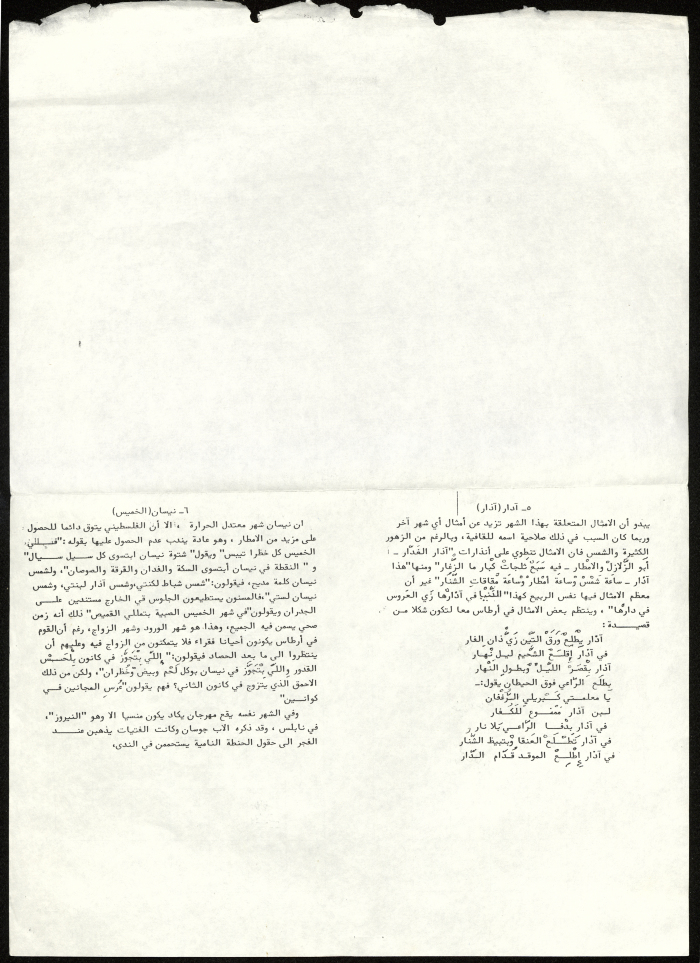 ٥ـ آدار (آذار)
يبدو أن الامثال المتعلقة بهذا الشهر تزيد عن أمثال أي شهر آخر
وربما كان السبب في ذلك صلاحية اسمه للقافية ، وبالرغم من الزهور
الكثيرة والشمس فان الامثال تنطوي على انذارات "آذار الغدّار ـ
أبو الزّلازِلْ والامطار ـ فيه سَبَعْ ثَلجاتْ كْبار ما الزغار" ومنها"هذا
آذار ـ ساعة شمْسْ وْساعة أمْطار وْساعة مْقاقات الشُّنَّار" غير أن
معظم الامثال فيها نفس الربيع كهذا" الدُّنْيا في آذارْها زَي العَروس
في دارْها" ، وينتظم بعض الامثال في أرطاس معا لتكون شكلا مـن
قصيـــدة :
آذار يِطْلَعْ وَرَقْ التّين زَيّ ذان الفار
في آذار
آذار يُقْصَرْ الليـل وْيطـول النّهـار
يطلع الرّاعي فوق الحيطان يقول:ـ
يا معلمتي
لـبن آذار للكـفار
في آذار يدْفـا الرّاعـي بَلا نار
في آذار العنقا وْبتبيظ الشُّنّار
في آذار إطْلـعْ الموقـد قـدّام الـدّار
٦ـ نيسان(الخميس)
ان نيسان شهر معتدل الحرارة ، الا أن الفلسطيني يتوق دائما للحصول
على مزيد من الامطار ، وهو عادة يندب عدم الحصول عليها بقوله :
الخميس كل خظرا تيبس" ويقول" شتوة نيسان ابتسوى كل سـيل سـيال"
و " النقطة في نيسان ابتسوى السكة والفدان والقرقة والصوصان"، ولشمس
نيسان كلمة مديح، فيقولون:"شمس شباط لكنتي،وشمس آذار لبنتي، وشمس
نيسان لستي"،فالمسنون يستطيعون الجلوس في الخارج مستندين علـــى
الجدران ويقولون"في شهر الخميس الصبية بتعللي القميص" ذلك أنه زمن
صحي يسمن فيه الجميع، وهذا هو شهر الورود وشهر الزواج، رغم أن القوم
في أرطاس يكونون أحيانا فقراء فلا يتمكنون من الزواج فيه وعليهم أن
ينتظروا الى ما بعد الحصاد فيقولون:" إللّي بْتَجَوّز في كانون بِلْحَـسْ
القدور واللّي بْتَجَوّز في نيسان بوكل لَحْم وبيض وْخظران"، ولكن من ذلك
الاحمق الذي يتزوج في كانون الثاني؟ فهم يقولون"عُرْس المجانين فــي
كوانـين"
وفي الشهر نفسه يقع مهرجان يكاد يكون منسيا الا وهو "النيروز"،
في نابلس ، وقد ذكره الآب جوسان وكانت الفتيات يذهبن عنــــد
الفجر الى حقول الحنطة النامية يستحممن في الندى،